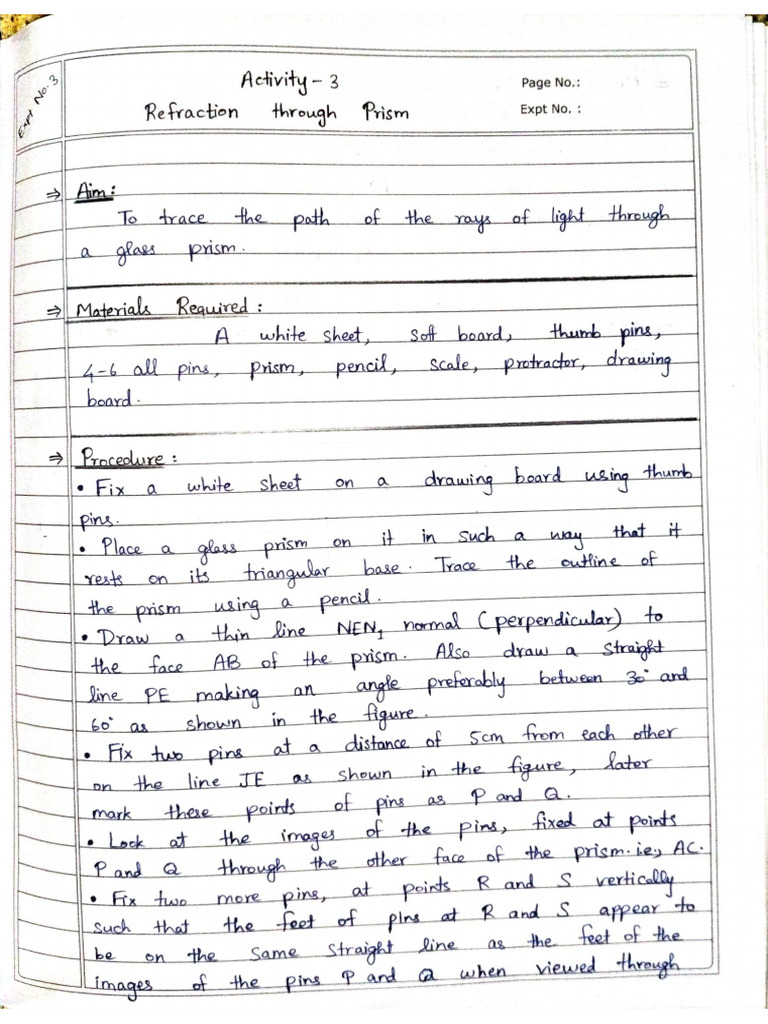 Expt No. 3
Activity - 3
Page No.:
Refraction through Prism
Expt No. :
⇒ Aim :
To trace the path of the rays of light through
a glass prism.
⇒ Materials Required :
A white sheet, soft board, thumb pins,
4-6 all pins, prism, pencil, scale, protractor, drawing
board.
⇒ Procedure :
• Fix a white sheet on a drawing board using thumb
pins.
• Place a glass prism on it in such a way that it
rests on its triangular base. Trace the outline of
the prism using a pencil.
• Draw a thin line NEN₁ normal (perpendicular) to
the face AB of the prism. Also draw a straight
line PE making an angle preferably between 30° and
60° as shown in the figure.
• Fix two pins at a distance of 5cm from each other
on the line JE as shown in the figure, later
mark these points of pins as P and Q.
• Look at the images of the pins, fixed at points
P and Q through the other face of the prism. i.e., AC.
• Fix two more pins, at points R and S vertically
such that the feet of pins at R and S appear to
be on the same straight line as the feet of the
images of the pins P and Q when viewed through